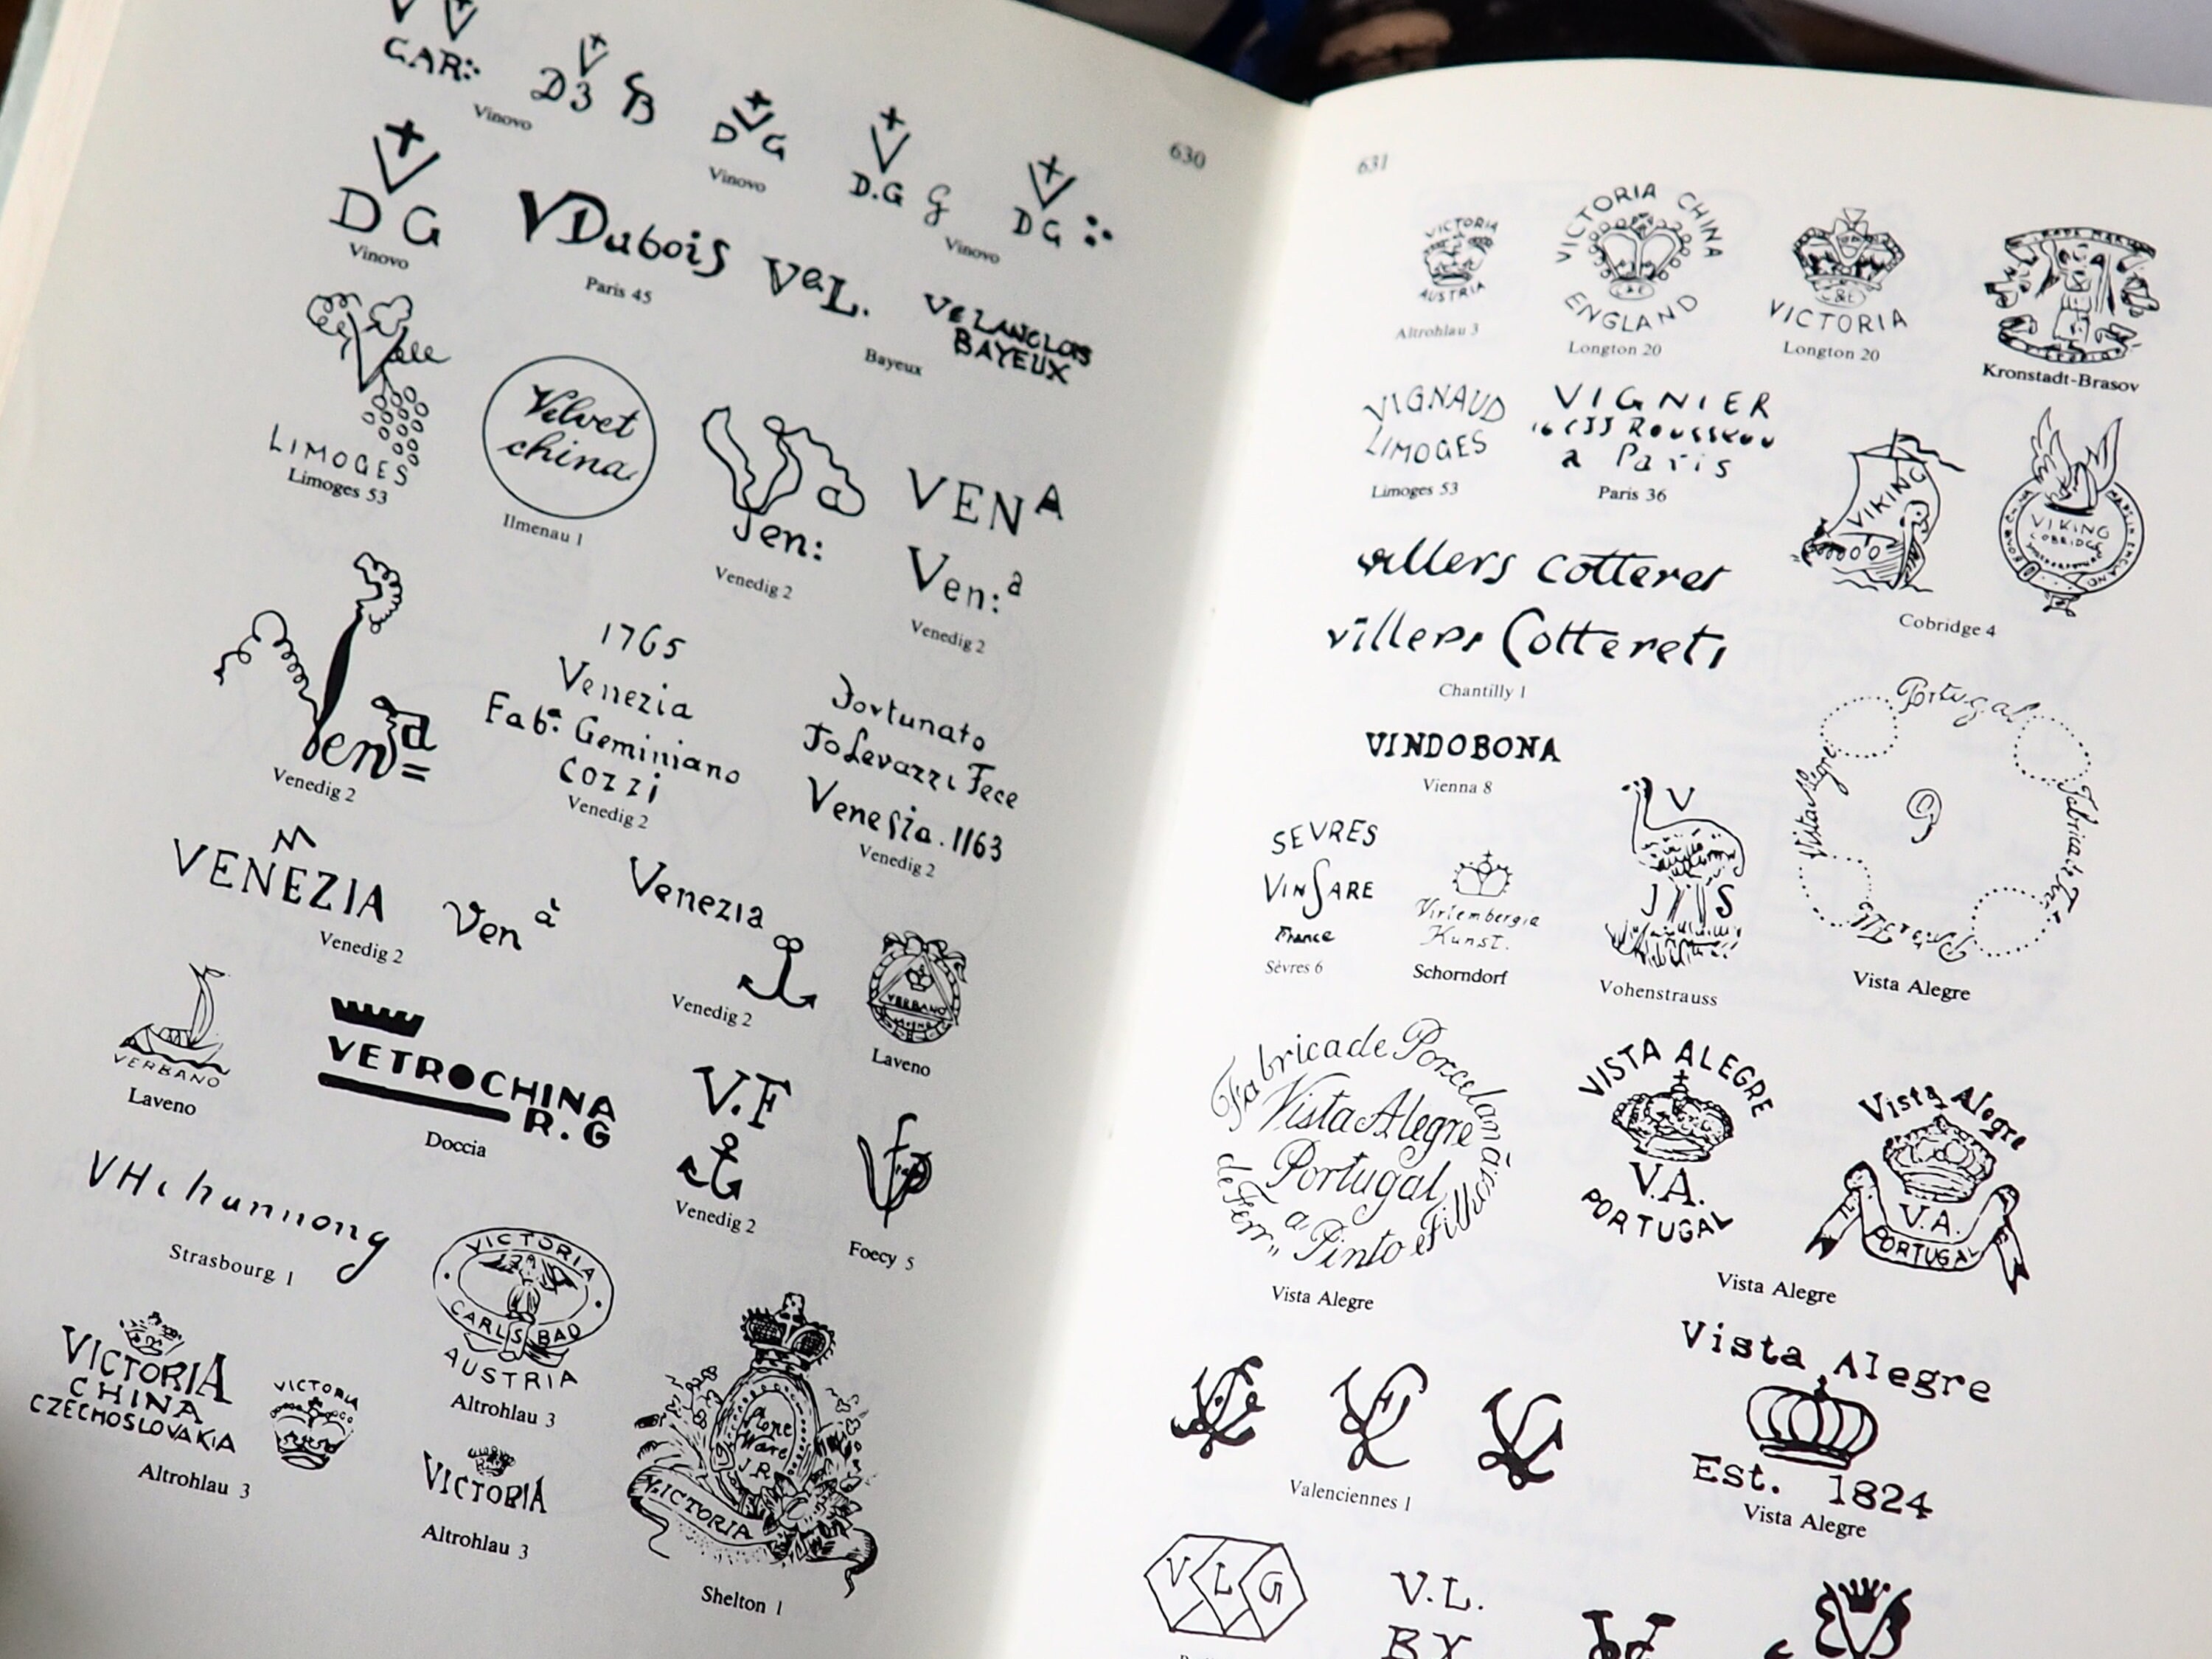 GAR:
Vinovo
D3 B
D G
Vinovo
D.G G
Vinovo
DG
630
DG
Vinovo
VDubois
Paris 45
VeL.
VeLANGLOIS
BAYEUX
Bayeux
LIMOGES
Limoges 53
Velvet
china
Ilmenau 1
Jen:
a
Venedig 2
VENA
Ven:a
Venedig 2
Vena
Venedig 2
1765
Venezia
Faba: Geminiano
Cozzi
Venedig 2
Fortunato
Tolevazzi Fece
Venesia. 1163
Venedig 2
VENEZIA
Venedig 2
Ven à
Venezia
Venedig 2
VERBANO
Laveno
VERBANO
Laveno
VETROCHINA
R.G
Doccia
V.F
Venedig 2
Foecy 5
Strasbourg 1
VICTORIA
CARLSBAD
AUSTRIA
Altrohlau 3
VICTORIA
CHINA
CZECHOSLOVAKIA
VICTORIA
Altrohlau 3
VICTORIA
Altrohlau 3
Stone
Ware
J.R.
VICTORIA
Shelton 1
631
VICTORIA
AUSTRIA
Altrohlau 3
VICTORIA CHINA
ENGLAND
Longton 20
VICTORIA
Longton 20
Kronstadt-Brasov
VIGNAUD
LIMOGES
Limoges 53
VIGNIER
Rousseau
a Paris
Paris 36
VIKING
VIKING
COBRIDGE
Cobridge 4
villers cotteret
villers Cotterets
Chantilly 1
VINDOBONA
Vienna 8
SEVRES
VINSARE
France
Sèvres 6
Virtembergia
Kunst.
Schorndorf
V
J S
Vohenstrauss
Portugal
Vista Alegre
Vista Alegre
Fabrica de Porcelana
Vista Alegre
Portugal
Pinto e Filhos
Vista Alegre
VISTA ALEGRE
V.A.
PORTUGAL
Vista Alegre
V.A.
PORTUGAL
Vista Alegre
Valenciennes 1
Vista Alegre
Est. 1824
Vista Alegre
VLG
V.L.
BX